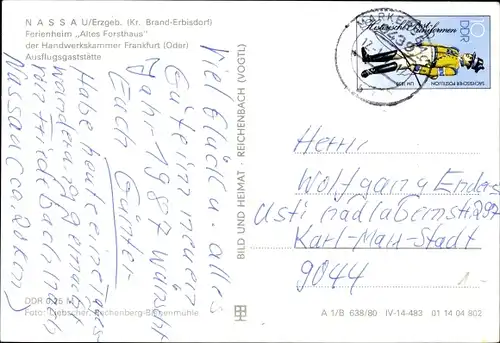 NASSAU/Erzgeb. (Kr. Brand-Erbisdorf)
Ferienheim „Altes Forsthaus"
der Handwerkskammer Frankfurt (Oder)
Ausflugsgaststätte
Viel Glück u. alles
Gute im neuen
Jahr 1987 wünscht
Euch Günter
Habe heute eine Tages
wanderung gemacht
von Friedebach nach
Nassau (ca 20 km)
DDR 0,25 M
Foto: Liebscher, Rechenberg-Bienenmühle
BILD UND HEIMAT · REICHENBACH (VOGTL)
Historische Postuniformen
10
DDR
SÄCHSISCHER POSTILLION
UM 1850
Herrn
Wolfgang Enders
Usti nad labem str. 297
Karl-Marx-Stadt
9044
1.-
A 1/B 638/80 IV-14-483 01 14 04 802